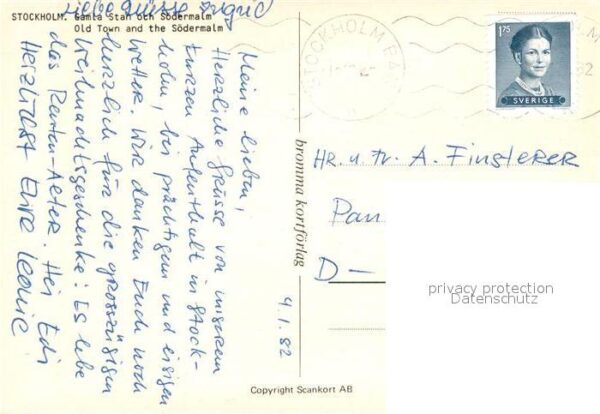 Liebe Grüsse Ingrid
STOCKHOLM. Gamla Stan och Södermalm
Old Town and the Södermalm
Meine lieben,
Herzliche Grüsse von unserem
kurzen Aufenthalt in Stock-
holm, bei prächtigem und eisigen
Wetter. Wir danken Euch noch
herzlich für die grosszügigen
Weihnachtsgeschenke! Es lebe
das Renten-Alter. Hei Edi
Herzlichst Eure Leonie
9.1.82
bromma kortförlag
STOCKHOLM BAN
82
1.75
SVERIGE
HR. u. Fr. A. Finsterer
Pan
D-
privacy protection
Datenschutz
Copyright Scankort AB